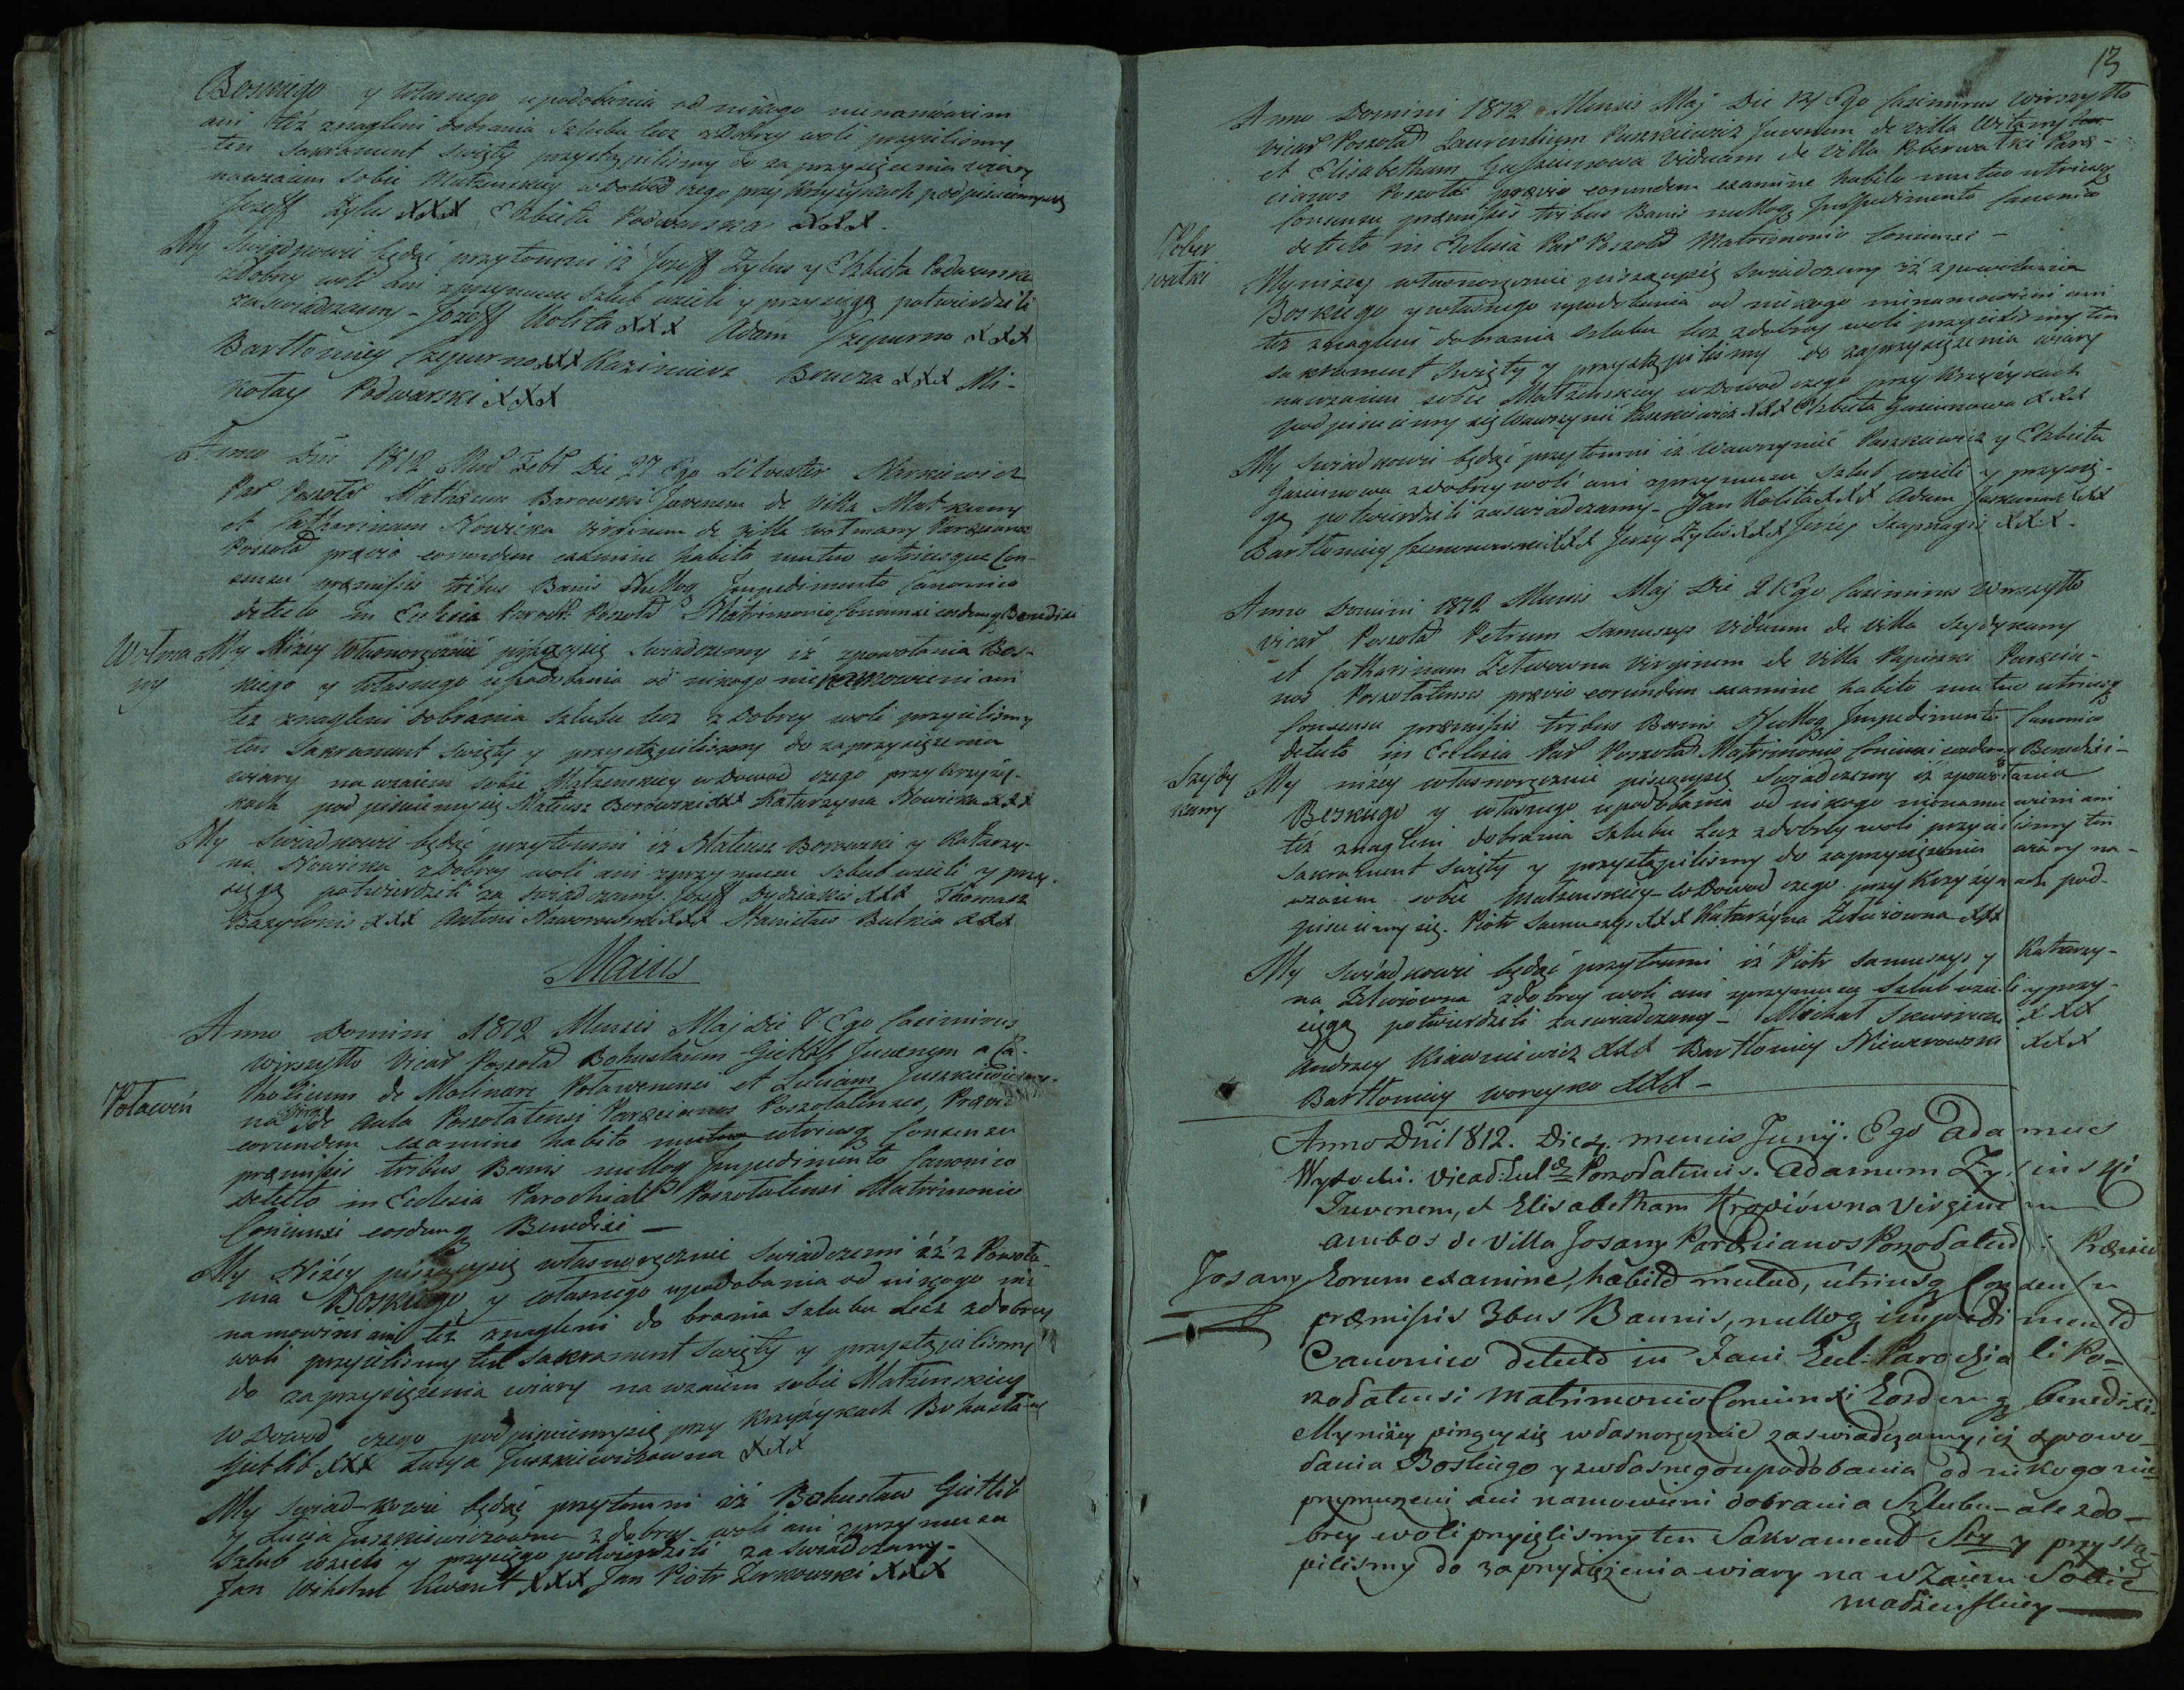 Boskiego y własnego upodobania od nikogo nienamówieni
ani też znagleni dobrania szlubu lecz z Dobrey woli przyieliśmy
ten Sakrament święty przystąpiliśmy do zaprzysięzenia wiary
nawzaiem sobie Małżenskiey w Dowod czego przy Krzyżykach podpisuiemysię
Jozeff Zylus XXX Elzbieta Podwarska XXX.
My Swiadkowie będąć przytomni iż Jozeff Zylus y Elzbieta Podwarska
zdobrey woli ani zprzymusu szlub wzieli y przysięgą potwierdzili
zaswiadczamy - Jozeff Kolita XXX Adam Czepurna XXX
Bartłomiey Czepurna XXX Kazimierz Brucza XXX Mi-
kołay Podwarski XXX
Anno Dni 1812 Mens Febr Die 27 Ego Silvester Nirkiewicz
Par Poszołat Matheum Barowski Juvenem de Villa Matkuny
et Catharinam Nowicka virginem de Villa Wołmany Paræcianos
Poszołat prævio eorundem examine habito mutuo utriusque Con-
sensu præmissis tribus Banis Nulloq Impedimento Canonico
detecto in Ecclesia Paroch: Poszołat Matrimonio Coniunxi eosdemq Benedixi
Wołma
ny
My Niżey Własnoręcznie piszącysię swiadczemy iż zpowołania Bos-
kiego y własnego upodobania od nikogo nienamowieni ani
też znagleni dobrania szlubu lecz z Dobrey woli przyieliśmy
ten Sakrament Swięty y przystąpiliśmy do zaprzysięzenia
wiary nawzaiem sobie Małzenskiey w Dowod czego przy krzyży-
kach podpisuiemysię Mateusz Borowski XXX Katarzyna Nowicka XXX
My Swiadkowie będąć przytomni iż Mateusz Borowski y Katarzy-
na Nowicka zdobrey woli ani zprzymusu szlub wzieli y przy-
sięgą potwierdzili zaswiadczamy. Jozeff Dydziakis XXX Thomasz
Bazylonis XXX Antoni Naworowski XXX Stanisław Butkia XXX
Maius
Anno Domini 1812 Mensis Maj Die 7 Ego Casimirus
Wirszyłło Vicar Poszołat Bohuslaum Gietlib Juvenem a Ca-
tholicum de Molinare Poławenensi et Luciam Juszkiewiczow-
na Virg de Aula Poszołatensi Paræcianos Poszołatenses, Prævio
Poławeń
eorundem examine habito mutuo utriusq Consensu
præmissis tribus Banis nulloq Impedimento Canonico
detecto in Ecclesia Parochiali Poszołatensi Matrimonio
Coniunxi eosdemq Benedixi -
My Niżey piszącysię własnoręcznie swiadczemi iż z Powoła-
nia Boskiego y własnego upodobania od nikogo nie
namowieni ani też znagleni do brania szlubu Lecz zdobrey
woli przyieliśmy ten Sakrament Swięty y przystąpiliśmy
do zaprzysięzenia wiary na wzaiem sobie Małżenskiey
w Dowod czego podpisuiemysię przy Krzyżykach Bohusław
Gietlib XXX Lucya Juszkiewiczowna XXX
My swiadkowie będąć przytomni iż Bohusław Gietlib
y Lucia Juszkiewiczowna zdobrey woli ani zprzymusu
szlub wzieli y przysięgo potwierdzili zaswiadczamy -
Jan Wihelm Kwant XXX Jan Piotr Zerkowski XXX
13
Anno Domini 1812 Mensis Maj Die 12 Ego Casimirus Wirszyłło
Vicar Poszołat Laurentium Paszkiewicz Juvenem de Villa Witarny
et Elisabetham Viduam de Villa Poberwałki Paræ-
cianos Poszołat prævio eorundem examine habito mutuo utriusq
Consensu præmissis tribus Banis nulloq Impedimento Canonico
detecto in Eclesia Par Poszołat Matrimonio Coniunxi -
Pober
wałki
My niżey własnoręcznie piszącysię swiadczemy iż zpowołania
Boskiego y własnego upodobania od nikogo nienamowieni ani
też znagleni dobrania szlubu lecz zdobrey woli przyieliśmy ten
sakrament Swięty y przystąpiliśmy do zaprzysięzenia wiary
nawzaiem sobie Małżenskiey w Dowod czego przy Krzyżykach
podpisuiemy się Wawrzyniec Paszkiewicz XXX Elzbieta XXX
My swiadkowie będąć przytomni iż Wawrzyniec Paszkiewicz y Elzbieta
zdobrey woli ani zprzymusu szlub wzieli y przysię-
gą potwierdzili zaswiadczamy - Jan Kolita XXX Adam XXX
Bartłomiey XXX Jerzy Zylis XXX Jerzy XXX -
Anno Domini 1812 Mensis Maj Die 21 Ego Casimirus Wirszyłło
Vicar Poszołat Petrum Samuszys Viduum de Villa Szydykamy
et Catharinam Zetwowna Virginem de Villa Papiszki Paræcia-
nos Poszołatenses prævio eorundem examine habito mutuo utriusq
Consensu præmissis tribus Bannis Nulloq Impedimento Canonico
detecto in Ecclesia Par Poszołat Matrimonio Coniunxi eosdemq Benedixi -
Szydy
kamy
My niżey własnoręcznie piszącysię swiadczemy iż zpowołania
Boskiego y własnego upodobania od nikogo nienamowieni ani
też znagleni dobrania szlubu Lecz zdobrey woli przyieliśmy ten
Sakrament Swięty y przystąpiliśmy do zaprzysięzenia wiary na-
wzaiem sobie Małzenskiey - w Dowod czego przy Krzyżykach pod-
pisuiemy się. Piotr Samuszys XXX Katarzyna Zetwiowna XXX
My Swiadkowie będąć przytomni iż Piotr Samuszys y Katarzy-
na Zetwiowna zdobrey woli ani zprzymusu szlub wzieli y przy-
sięgą potwierdzili zaswiadczamy - Michał XXX
Andrzey XXX Bartłomiey Niewerowski XXX
Bartłomiey Woreyko XXX -
Anno Dni 1812. Die 4. mensis Junij. Ego Adamus
Wysocki. Adamum
Juvenem, et Elisabetham Kropiówna Virginem
ambos de Villa Josany Paræcianos Præ
Josany
Eorum examine, habito mutuo, utriusq Consensu
præmissis 3bus Bannis, nulloq impedimento
Canonico detecto in Fani Eccl: Parochiali Po-
szołatensi Matrimonio Coniunxi Eosdemq benedixi.
My niżey piszącysię własnoręcznie zaswiadczamy, iż zpowo-
łania Boskiego y zwłasnego upodobania od nikogo nie
przymuszeni ani namowieni dobrania Szlubu - ale zdo-
brey woli przyięlismy ten Sakrament Sty y przystą-
piliśmy do zaprzysiężenia wiary na wzaiem Sobie
małżeńskiey